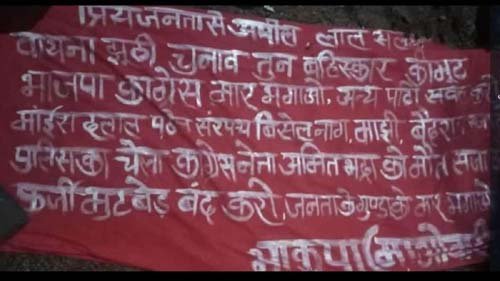 प्रियजनता से अपील लाल सलाम
वाथना झठी चुनाव तुन बहिस्कार कामट
भाजपा कांग्रेस मार भगाओ, अन्य पार्टी सबक
दलाल पटन संरपच बिसेल नाग, माझी,
पुलिसका चेला कांग्रेस नेता अमित भद्रा को मौत सजा
फर्जी मुटबेड़ बंद करो, जनता के गुण्डाके मार भगाओ
भाकपा (माओवादी